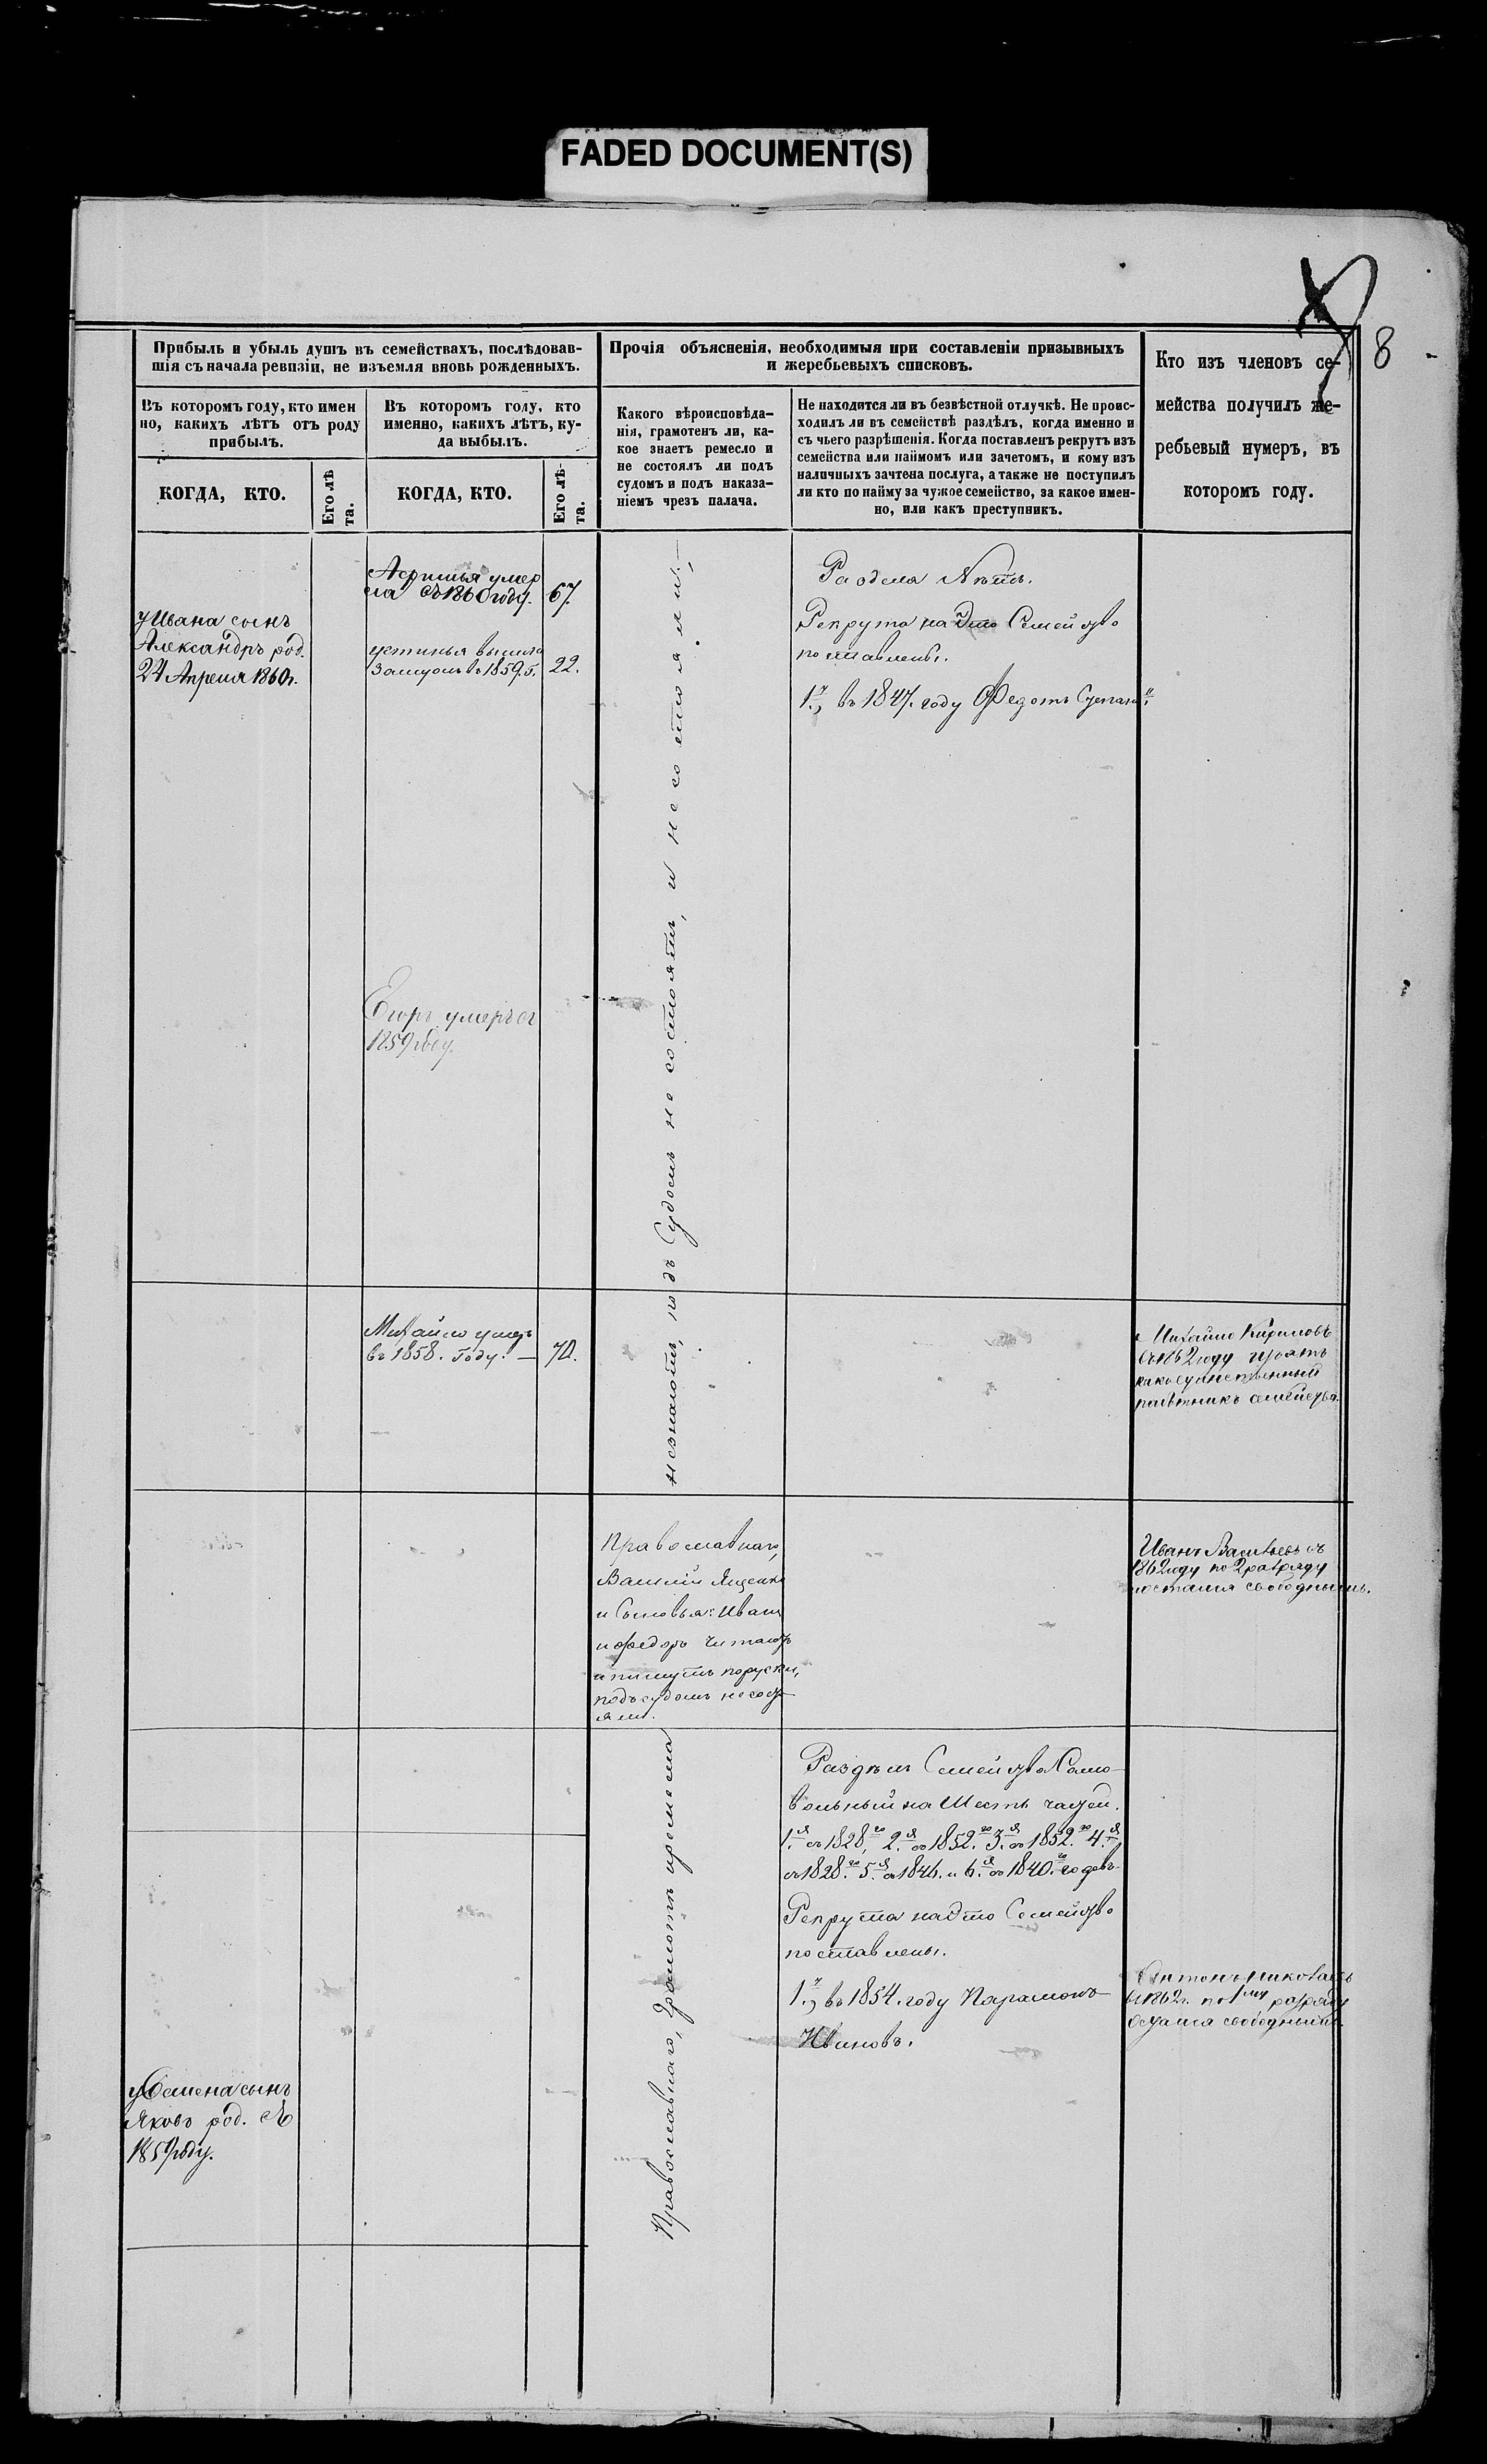 FADED DOCUMENT(S)
8
Прибыль и убыль душъ въ семействахъ, послѣдовав-
шія съ начала ревизіи, не изъемля вновь рожденныхъ.
Прочія объясненія, необходимыя при составленіи призывныхъ
и жеребьевыхъ списковъ.
Кто изъ членовъ се-
мейства получилъ же-
ребьевый нумеръ, въ
которомъ году.
Въ которомъ году, кто имен
но, какихъ лѣтъ отъ роду
прибылъ.
Въ которомъ году, кто
именно, какихъ лѣтъ, ку-
да выбылъ.
Какого вѣроисповѣда-
нія, грамотенъ ли, ка-
кое знаетъ ремесло и
не состоялъ ли подъ
судомъ и подъ наказа-
ніемъ чрезъ палача.
Не находится ли въ безвѣстной отлучкѣ. Не проис-
ходилъ ли въ семействѣ раздѣлъ, когда именно и
съ чьего разрѣшенія. Когда поставленъ рекрутъ изъ
семейства или наймомъ или зачетомъ, и кому изъ
наличныхъ зачтена послуга, а также не поступилъ
ли кто по найму за чужое семейство, за какое имен-
но, или какъ преступникъ.
КОГДА, КТО.
Его лѣ
та.
КОГДА, КТО.
Его лѣ-
та.
умер
ла въ 1860 году. 67.
у Ивана сынъ
Александръ род.
24 Апреля 1860 г.
устинья вышла
Замужъ въ 1859 г. 22.
Раздела Нѣтъ.
Рекрута на Это Семейство
поставлены.
1й, въ 1847. году Федотъ Степан
Егоръ умеръ въ
1859 году.
незнаютъ, подъ Судомъ не состоятъ, и не состояли,
Михайло умеръ
въ 1858. Году. — 70.
Михайло Кириловъ
въ 1862 году изъятъ
какъ единственный
работникъ семейства.
Православнаго,
Василій Ященко
и Сыновья: Иванъ
и Федоръ Читаютъ
и пишутъ поруски,
подъ судомъ несост
яли.
Иванъ Васильевъ въ
1862 году по 2 разряду
остался свободнымъ.
Православнаго, Грамотѣ ремесла
Раздѣлъ Семейства Само-
вольный на Шесть частей.
1.я въ 1828, го 2.я въ 1852. го 3.я въ 1852. го 4.я
въ 1828. го 5.я въ 1846. и 6.я въ 1840. го годовъ.
Рекрута на Это Семейство
поставлены.
1.й, въ 1854. году Парамонъ
Ивановъ.
Антонъ Николаевъ
въ 1862 г. по 1му разряду
остался свободнымъ.
у Семена сынъ
Яковъ род. въ
1859 году.